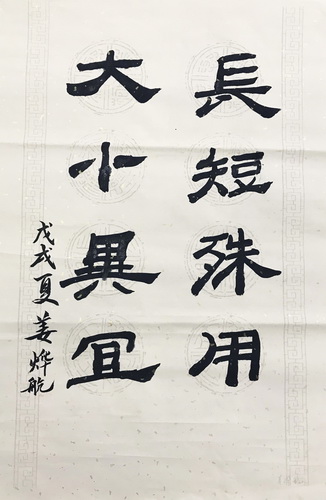 長短殊用
大小異宜
戊戌夏姜烨航